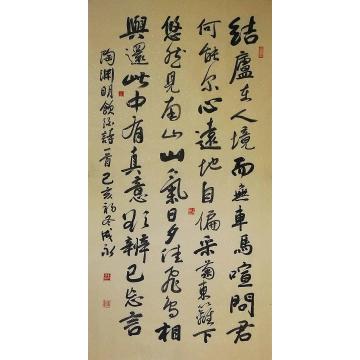 结廬在人境而無車馬喧問君
何能尔心遠地自偏采菊東籬下
悠然見南山山氣日夕佳飛鳥相
與還此中有真意欲辨已忘言
陶渊明飲酒詩一首己亥初冬成永